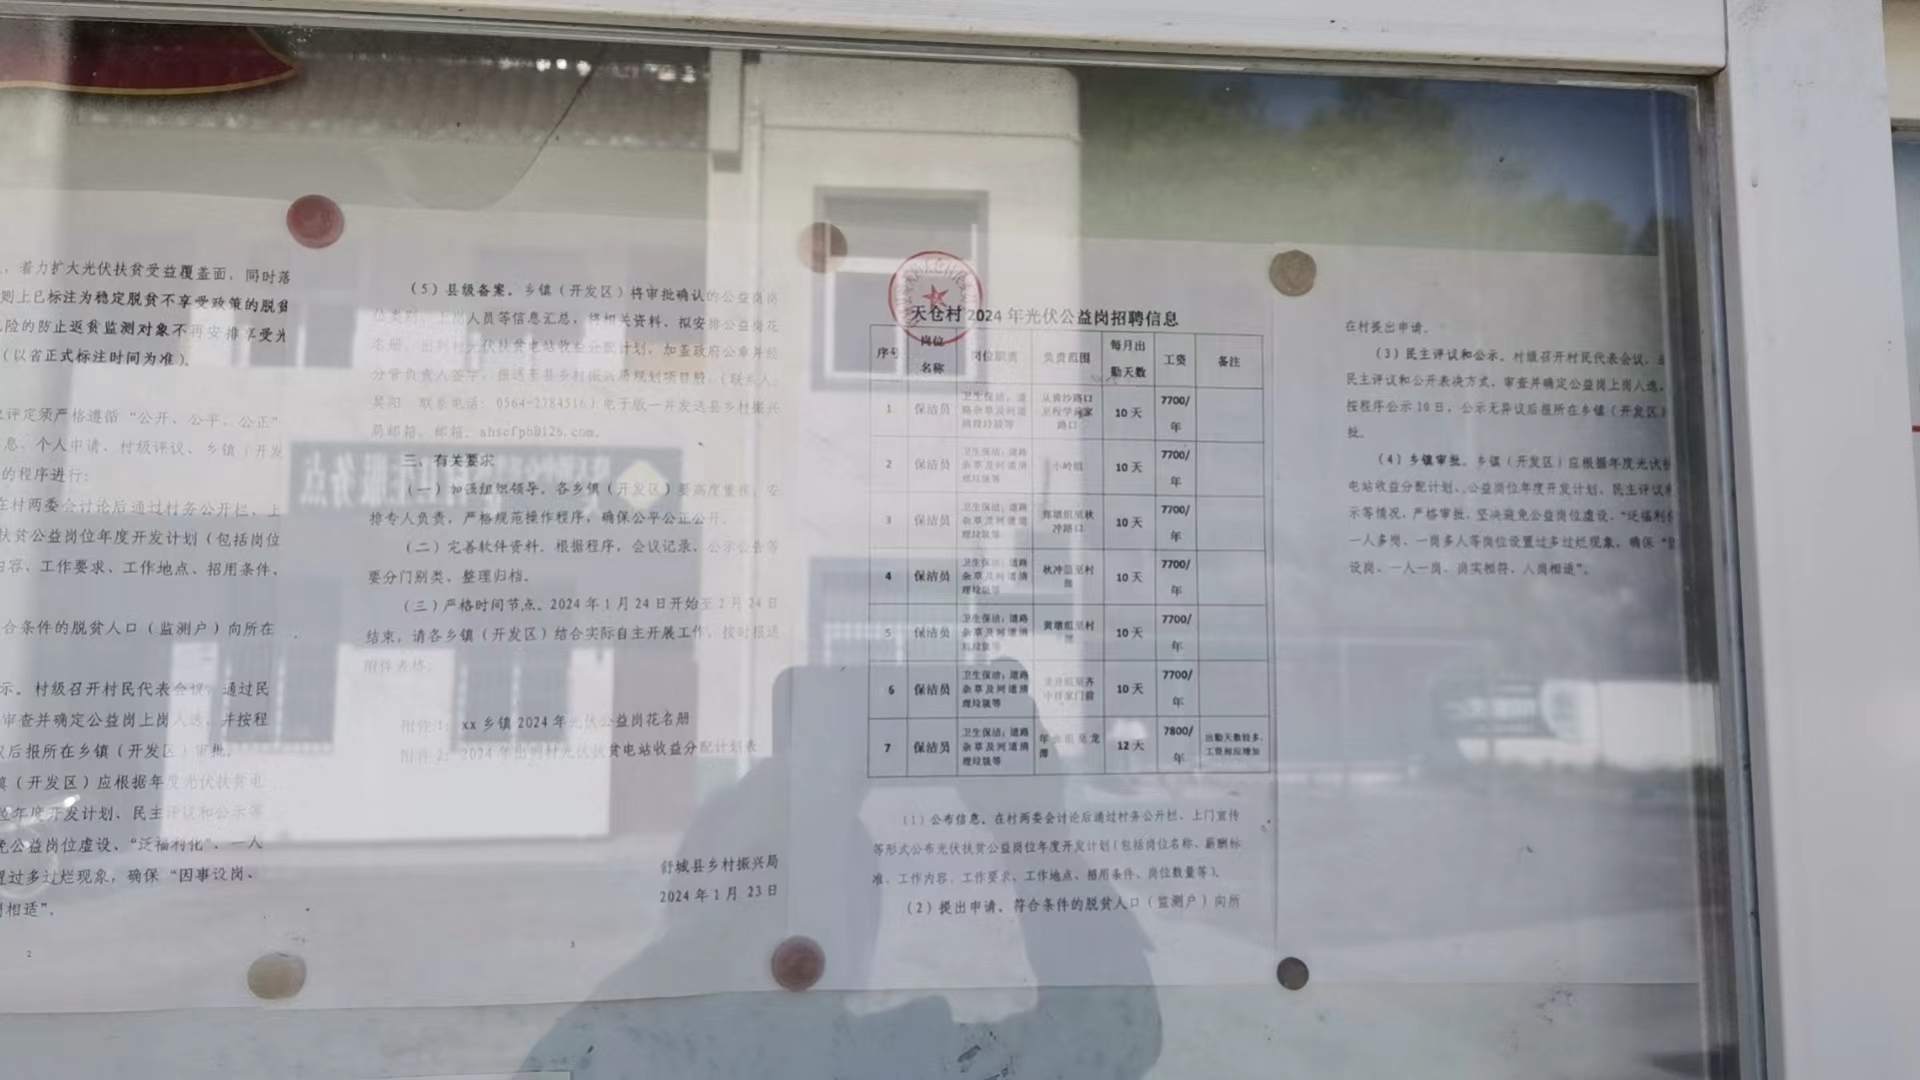 着力扩大光伏扶贫受益覆盖面，同时落
则上已标注为稳定脱贫不享受政策的脱贫
险的防止返贫监测对象不再安排享受光
（以省正式标注时间为准）。
评定须严格遵循“公开、公平、公正”
息、个人申请、村级评议、乡镇（开发
的程序进行：
在村两委会讨论后通过村务公开栏、上
扶贫公益岗位年度开发计划（包括岗位
内容、工作要求、工作地点、招用条件、
合条件的脱贫人口（监测户）向所在
示。村级召开村民代表会议，通过民
审查并确定公益岗上岗人选，并按程
议后报所在乡镇（开发区）审批。
镇（开发区）应根据年度光伏扶贫电
位年度开发计划、民主评议和公示等
免公益岗位虚设、“泛福利化”、一人
置过多过烂现象，确保“因事设岗、
岗相适”。
2
（5）县级备案。乡镇（开发区）将审批确认的公益岗岗
位类别、上岗人员等信息汇总，将相关资料、拟安排公益岗花
名册、出列村光伏扶贫电站收益分配计划，加盖政府公章并经
分管负责人签字，报送至县乡村振兴局规划项目股，（联系人：
吴阳 联系电话：0564-2784516）电子版一并发送县乡村振兴
局邮箱。邮箱：ahscfpb@126.com。
三、有关要求
（一）加强组织领导。各乡镇（开发区）要高度重视，安
排专人负责，严格规范操作程序，确保公平公正公开。
（二）完善软件资料。根据程序，会议记录、公示公告等
要分门别类、整理归档。
（三）严格时间节点。2024年1月24日开始至2月24日
结束，请各乡镇（开发区）结合实际自主开展工作，按时报送
附件表格。
附件1：xx乡镇2024年光伏公益岗花名册
附件2：2024年出列村光伏扶贫电站收益分配计划表
舒城县乡村振兴局
2024年1月23日
3
天仓村2024年光伏公益岗招聘信息
序号 岗位名称 岗位职责 负责范围 每月出勤天数 工资 备注
1 保洁员 卫生保洁；道路杂草及河道清理垃圾等 从黄沙路口至程学家路口 10天 7700/年
2 保洁员 卫生保洁；道路杂草及河道清理垃圾等 小岭组 10天 7700/年
3 保洁员 卫生保洁；道路杂草及河道清理垃圾等 组至秋冲路口 10天 7700/年
4 保洁员 卫生保洁；道路杂草及河道清理垃圾等 秋冲组至村部 10天 7700/年
5 保洁员 卫生保洁；道路杂草及河道清理垃圾等 黄墩组至村部 10天 7700/年
6 保洁员 卫生保洁；道路杂草及河道清理垃圾等 10天 7700/年
7 保洁员 卫生保洁；道路杂草及河道清理垃圾等 组至龙潭 12天 7800/年 出勤天数较多，工资相应增加
（1）公布信息。在村两委会讨论后通过村务公开栏、上门宣传
等形式公布光伏扶贫公益岗位年度开发计划（包括岗位名称、薪酬标
准、工作内容、工作要求、工作地点、招用条件、岗位数量等）。
（2）提出申请。符合条件的脱贫人口（监测户）向所
在村提出申请。
（3）民主评议和公示。村级召开村民代表会议，
民主评议和公开表决方式，审查并确定公益岗上岗人选，
按程序公示10日，公示无异议后报所在乡镇（开发区）
批。
（4）乡镇审批。乡镇（开发区）应根据年度光伏扶
电站收益分配计划、公益岗位年度开发计划、民主评议和
示等情况，严格审批，坚决避免公益岗位虚设、“泛福利化
一人多岗、一岗多人等岗位设置过多过烂现象，确保“因
设岗、一人一岗、岗实相符、人岗相适”。